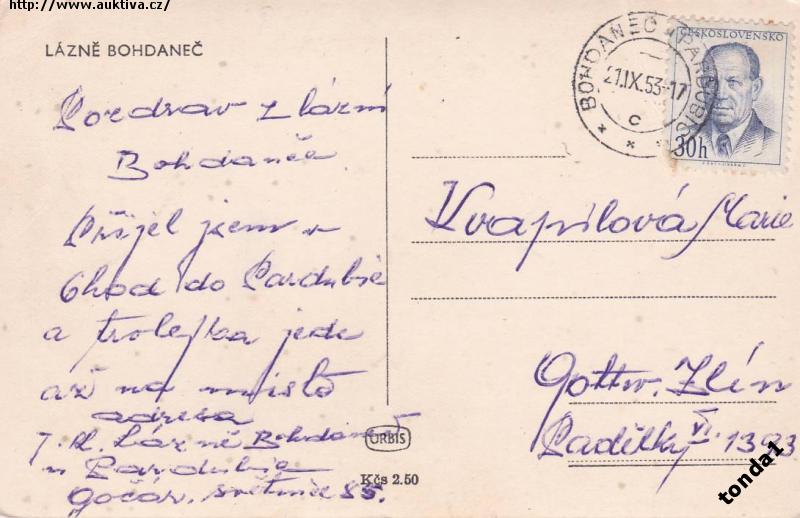 http://www.auktiva.cz/
LÁZNĚ BOHDANEČ
Pozdrav z lázní
Bohdanče.
Přijel jsem v
6 hod do Pardubic
a trolejka jede
až na místo
adresa
J. Kl. Lázně Bohdaneč
u Pardubic
Gočár. světnice 85.
BOHDANEČ PARDUBIC
21.IX.53-17
C
* * *
ČESKOSLOVENSKO
30h
Kvapilová Marie
Gottw. Zlín
Padělky VI. 1393
ORBIS
Kčs 2.50
tonda1